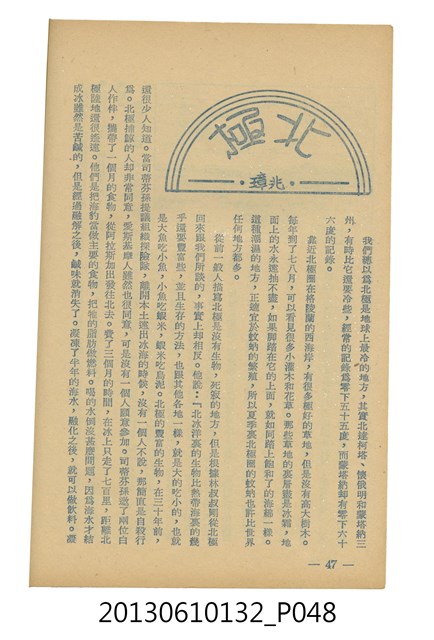 北極
·兆璋·
我們總以爲北極是地球上最冷的地方，其實北達柯塔、懷俄明和蒙塔納三
州，有時比它還要冷些，經常的記錄爲零下五十五度，而蒙塔納却有零下六十
六度的記錄。
靠近北極圈在格陵蘭的西海岸，有很多極好的草地，但是沒有高大樹木。
每年到了七八月，可以看見很多小灌木和花草。那些草地的裏層盡是冰霜，地
面上的水永遠抽不盡，如果脚踏在它的上面，就如同踏上飽和了的海綿一樣。
這種潮濕的地方，正適宜於蚊蚋的繁殖，所以夏季裏北極圈的蚊蚋也許比世界
任何地方都多。
從前一般人描寫北極是沒有生物，死寂的地方，但是根據林叔叔則從北極
回來跟我們所談的，事實上却相反。他說：『北冰洋裏的生物比熱帶海裏的幾
乎還要豐富些，並且生存的方法，也跟其他各地一樣，就是大的吃小的，也就
是大魚吃小魚，小魚吃蝦米，蝦米吃烏泥。北極的豐富的生物，在三十年前，
還很少人知道。當司蒂芬孫提議組織探險隊，離開本土遠出冰海的時候，沒有一個人不說，那簡直是自殺行
爲。北極捕鯨的人却非常同意，愛斯基摩人雖然也很同意，可是沒有一個人願意參加。司蒂芬孫選了兩位白
人作伴，攜帶了一個月的食物，從阿拉斯加出發往北去。費了三個月的時間，在冰上只走了七百里，距離北
極陸地還很遙遠。他們是把海豹當做主要的食物，把牠的脂肪做燃料。喝的水倒沒甚麼問題，因爲海水才結
成冰雖然是苦鹹的，但是經過融解之後，鹹味就消失了。凝凍了半年的海水，融化之後，就可以做飲料。凝
— 47 —
20130610132_P048